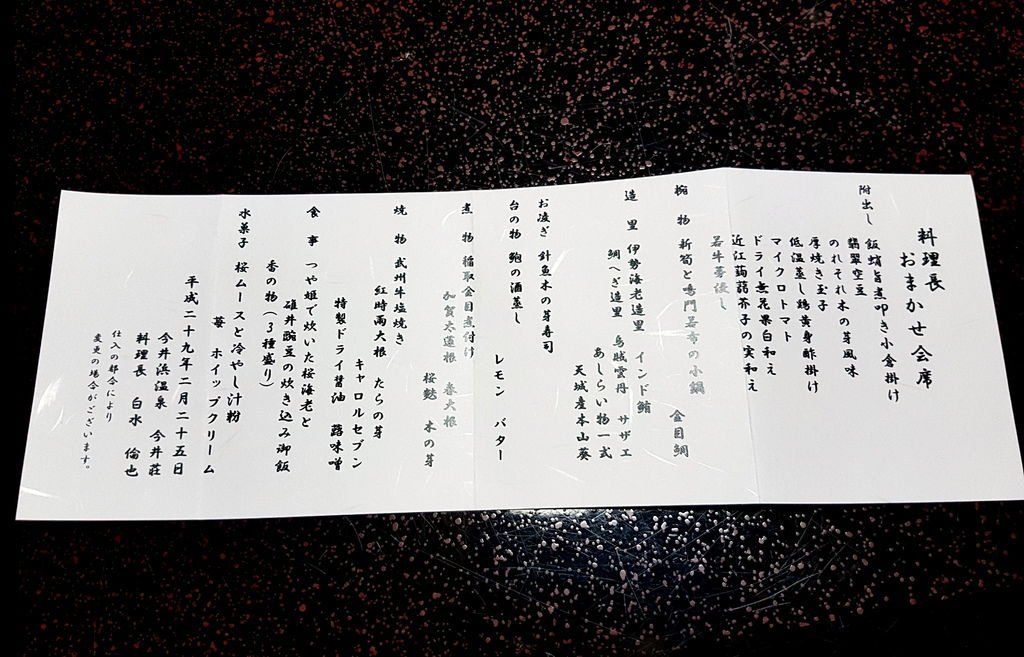 料理長
おまかせ会席
附出し 飯蛸旨煮叩き小倉掛け
翡翠空豆
のれそれ木の芽風味
厚焼き玉子
低温蒸し鶏黄身酢掛け
マイクロトマト
ドライ無花果白和え
近江蒟蒻芥子の実和え
若牛蒡浸し
椀 物 新筍と鳴門若布の小鍋 金目鯛
造 里 伊勢海老造里 インド鮪
鯛へぎ造里 烏賊雲丹 サザエ
あしらい物一式
天城産本山葵
お凌ぎ 針魚木の芽寿司
台の物 鮑の酒蒸し レモン バター
煮 物 稲取金目煮付け
加賀太蓮根 春大根
桜麩 木の芽
焼 物 武州牛塩焼き
紅時雨大根 たらの芽
キャロルセブン
特製ドライ醤油 蕗味噌
食 事 つや姫で炊いた桜海老と
碓井豌豆の炊き込み御飯
香の物(3種盛り)
水菓子 桜ムースと冷やし汁粉
苺 ホイップクリーム
平成二十九年二月二十五日
今井浜温泉 今井荘
料理長 白水 倫也
仕入の都合により
変更の場合がございます。